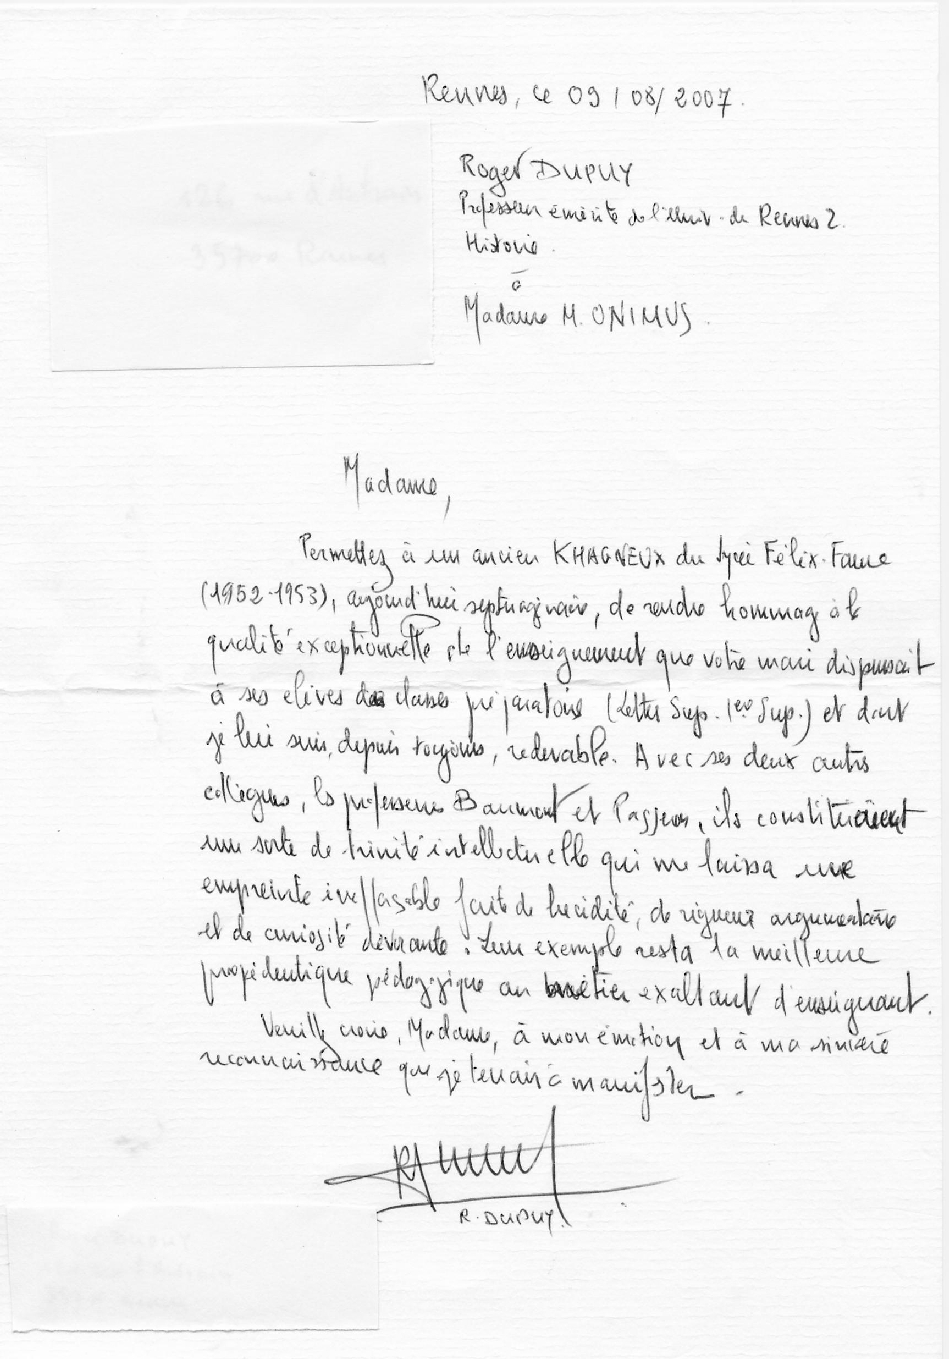 Rennes, le 09/08/2007.
Roger DUPUY
Professeur émérite de l'Univ. de Rennes 2.
Histoire.
à
Madame M. ONIMUS.
Madame,
Permettez à un ancien KHAGNEUX du lycée Félix-Faure
(1952-1953), aujourd'hui septuagénaire, de rendre hommage à la
qualité exceptionnelle de l'enseignement que votre mari dispensait
à ses élèves des classes préparatoires (Lettres Sup. 1ère Sup.) et dont
je lui suis, depuis toujours, redevable. Avec ses deux autres
collègues, les professeurs Baumont et Pasjeou, ils constituaient
une sorte de trinité intellectuelle qui me laissa une
empreinte ineffaçable faite de lucidité, de rigueur argumentaire
et de curiosité dévorante. Leur exemple resta la meilleure
propédeutique pédagogique au métier exaltant d'enseignant.
Veuillez croire, Madame, à mon émotion et à ma sincère
reconnaissance que je tenais à manifester.
R. DUPUY.